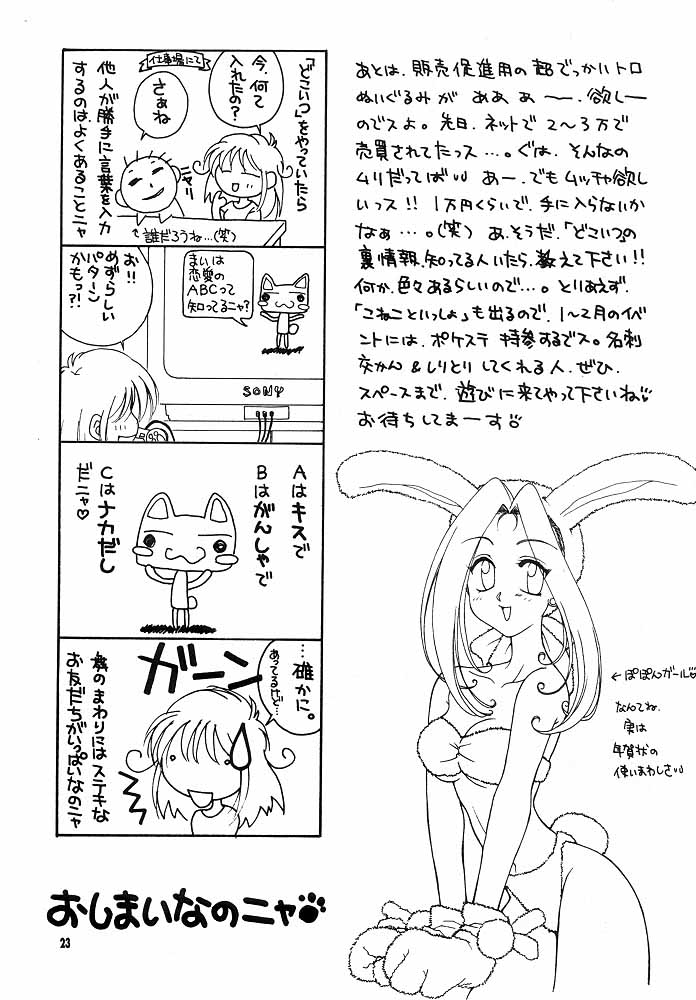 あとは、販売促進用の超でっかいトロ
ぬいぐるみが ああ ぁ〜、欲しー
のでスよ。先日、ネットで 2〜3万で
売買されてたっス…。ぐは、そんなの
ムリだってばvv あー、でもムッチャ欲し
いっス!! 1万円くらいで、手に入らないか
なぁ…。(笑) あ、そうだ、「どこいつ」の
裏情報、知ってる人いたら、教えて下さい!!
何か、色々あるらしいので…。とりあえず、
「こねこといっしょ」も出るので、1〜2月のイベ
ントには、ポケステ 持参するでス。名刺
交かん&しりとり してくれる人、ぜひ、
スペースまで、遊びに来てやって下さいね♡
お待ちしてまーす♡
「どこいつ」をやっていたら
仕事場にて
今、何て
入れたの?
さぁね
ニャリ
他人が勝手に言葉を入力
するのは、よくあることニャ
↑誰だろうね…(笑)
まいは
恋愛の
ABCって
知ってるニャ?
お!!
めずらしい
パターン
かもっ?!
SONY
Aはキスで
Bはがんしゃで
Cはナカだし
だニャ♡
…確かに。
あってるけど…
ガーン
僕のまわりにはステキな
お友だちがいっぱいなのニャ
←ぽぽんガール♡
なんてね、
実は
年賀状の
使いまわしさvv
おしまいなのニャ
23